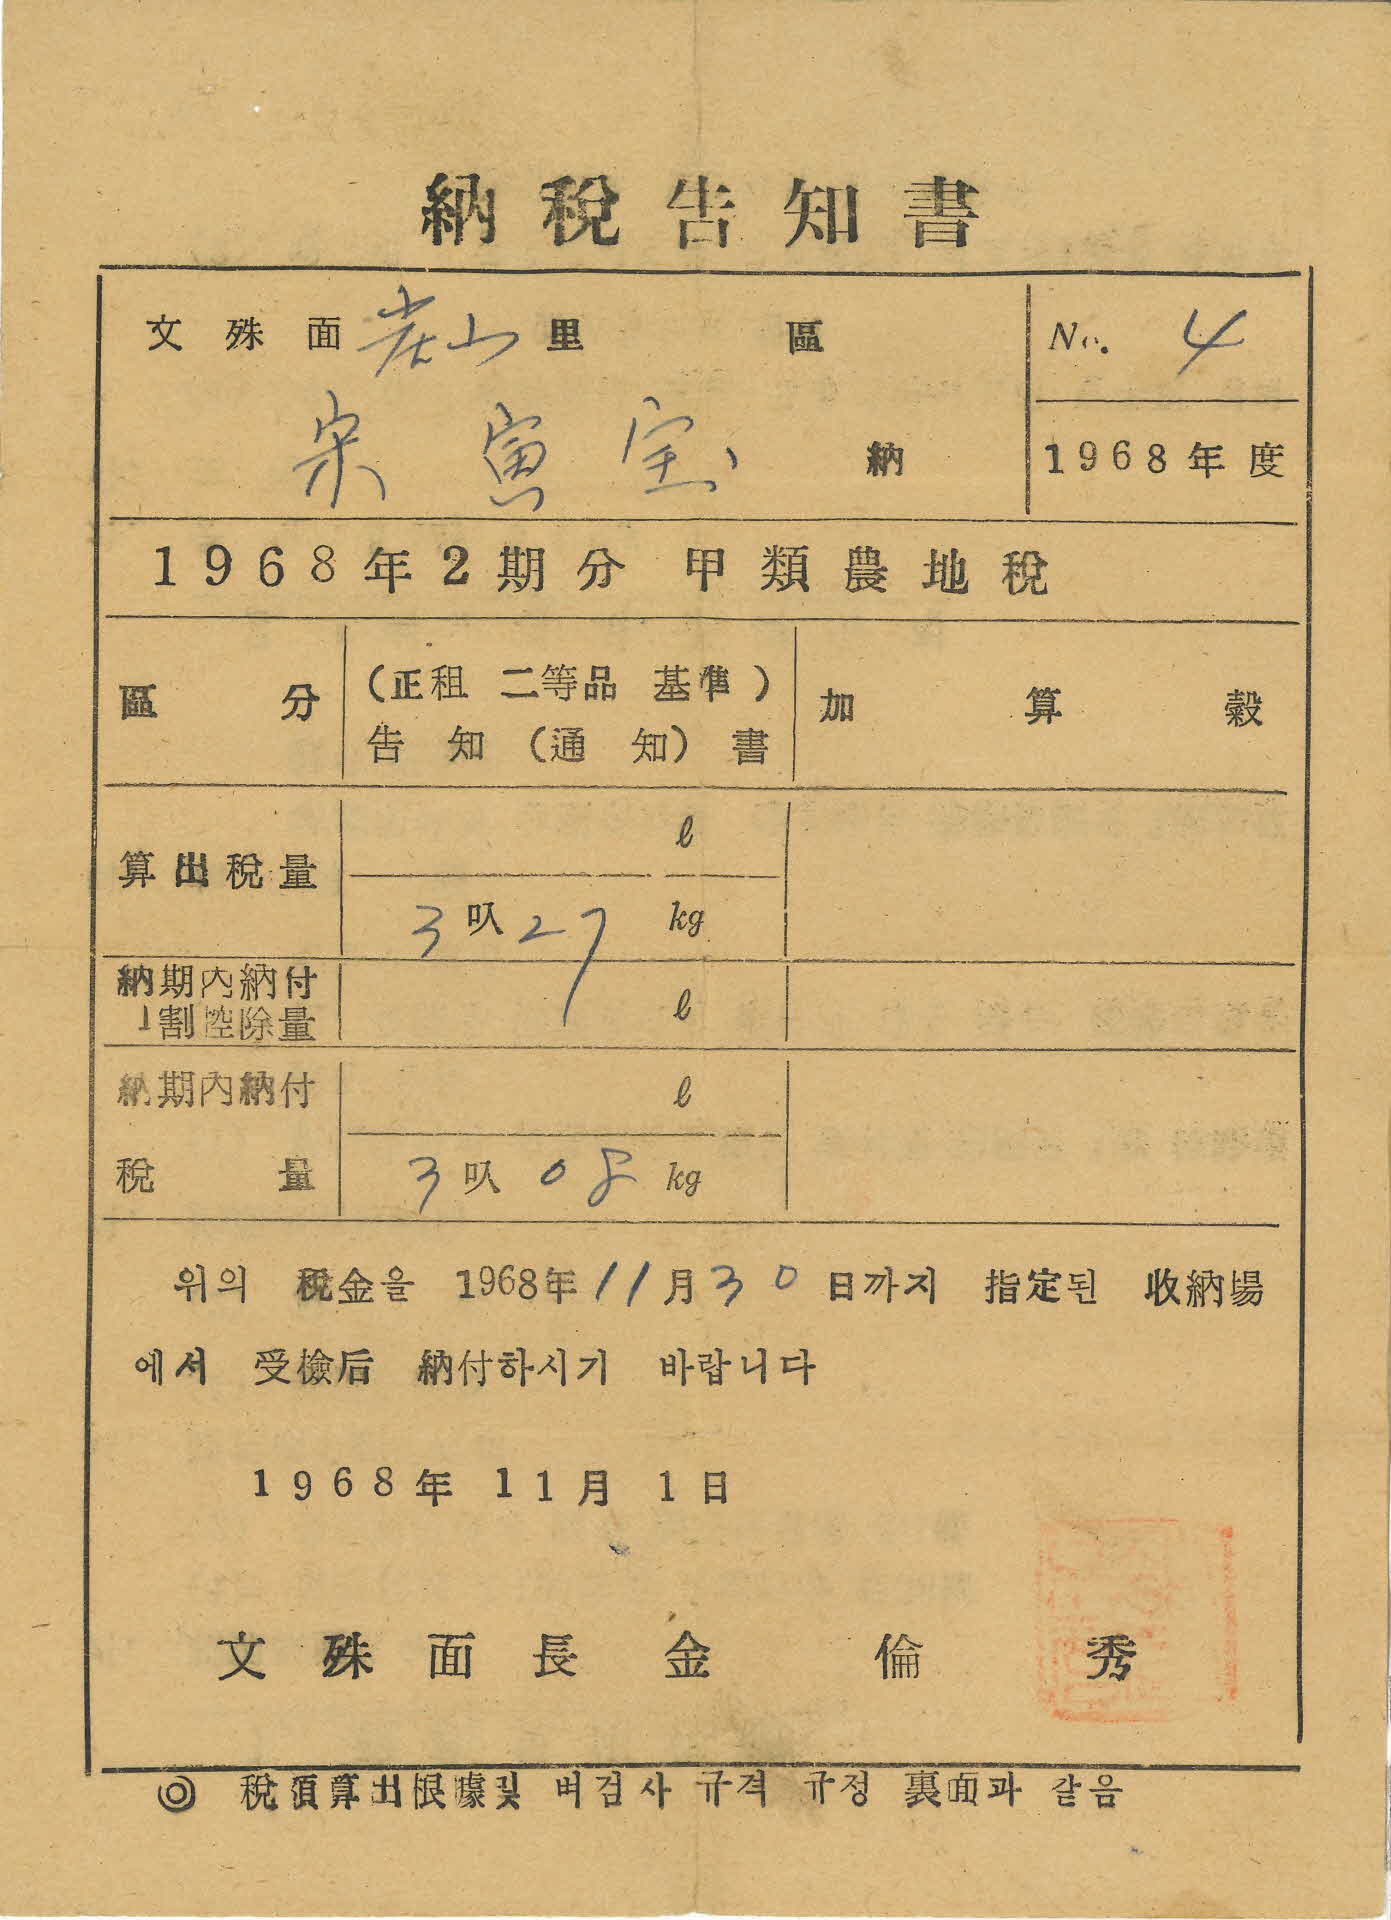 納稅告知書
文殊面 山里 區
No. 4
宋寅宝 納
1968年度
1968年2期分 甲類農地稅
區分 (正租 二等品 基準) 告知(通知)書 加算穀
算出稅量
ℓ
3 叺 27 kg
納期內納付
1割控除量 ℓ
納期內納付 ℓ
稅量 3 叺 08 kg
위의 稅金을 1968年 11月 30日까지 指定된 收納場
에서 受檢后 納付하시기 바랍니다
1968年 11月 1日
文殊面長 金倫秀
◎ 稅額算出根據및 벼검사 규격 규정 裏面과 같음